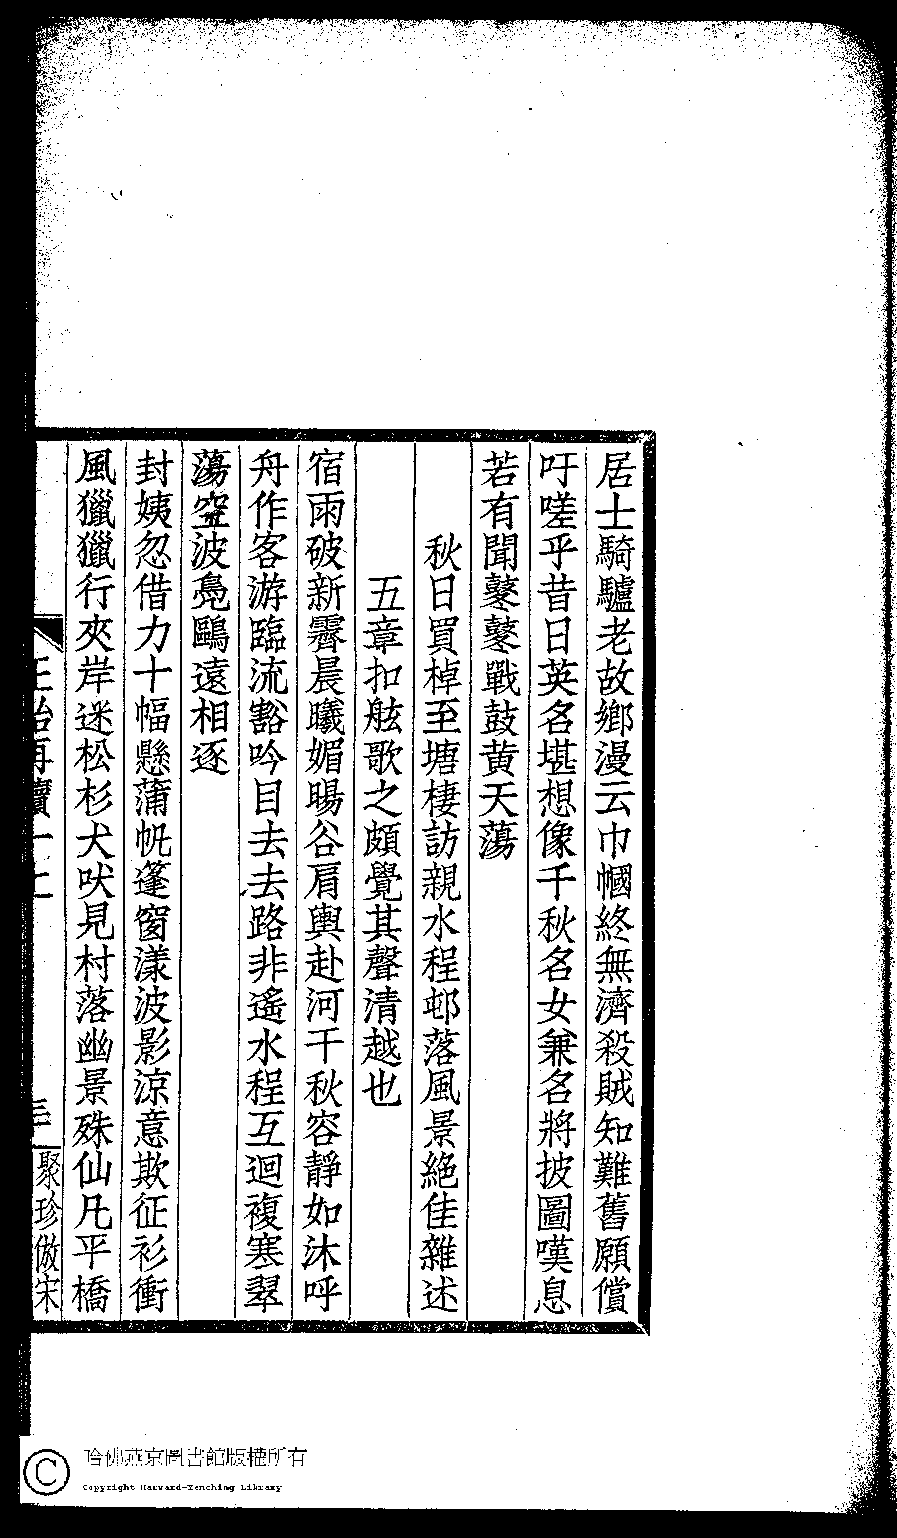 居士騎驢老故鄉漫云巾幗終無濟殺賊知難舊願償
吁嗟乎昔日英名堪想像千秋名女兼名將披圖嘆息
若有聞鼕鼕戰鼓黄天蕩
秋日買棹至塘棲訪親水程邨落風景絶佳雜述
五章扣舷歌之頗覺其聲清越也
宿雨破新霽晨曦媚暘谷肩輿赴河干秋容靜如沐呼
舟作客游臨流豁吟目去去路非遙水程互迴複寒翠
蕩空波鳧鷗遠相逐
封姨忽借力十幅懸蒲帆篷窗漾波影涼意欺征衫衝
風獵獵行夾岸迷松杉犬吠見村落幽景殊仙凡平橋
聚珍倣宋
哈佛燕京圖書館版權所有
Copyright Harvard-Yenching Library